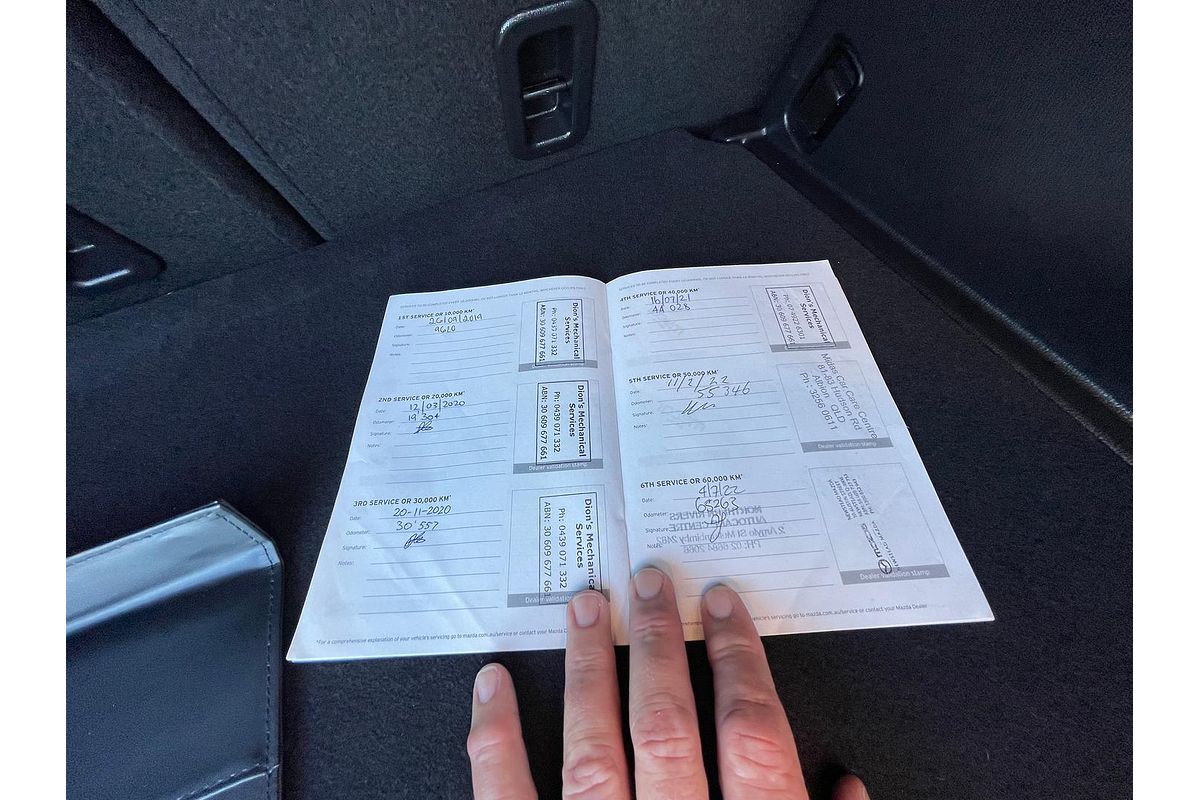 1ST SERVICE OR 10,000 KM*
Date: 26/09/2019
Odometer: 9620
Signature:
Notes:
Dion's Mechanical
Services
Ph: 0439 071 332
ABN: 30 609 677 661
2ND SERVICE OR 20,000 KM*
Date: 12/03/2020
Odometer: 19'304
Signature:
Notes:
Dion's Mechanical
Services
Ph: 0439 071 332
ABN: 30 609 677 661
Dealer validation stamp
3RD SERVICE OR 30,000 KM*
Date: 20-11-2020
Odometer: 30'557
Signature:
Notes:
Dion's Mechanical
Services
Ph: 0439 071 332
ABN: 30 609 677 66
Dealer validation
*For a comprehensive explanation of your vehicle's servicing go to mazda.com.au/service or contact your Mazda Dealer
SERVICES TO BE COMPLETED EVERY 10,000KMS, OR NOT LONGER THAN 12 MONTHS, WHICHEVER OCCURS FIRST
4TH SERVICE OR 40,000 KM*
Date: 16/07/21
Odometer: 44 028
Signature:
Notes:
Dion's Mechanical
Services
ABN: 30 609 677 661
5TH SERVICE OR 50,000 KM*
Date: 11/2/22
Odometer: 55 346
Signature:
Notes:
Midas Car Care Centre
81-83 Hudson Rd
Albion QLD
Ph: 3256 0611
Dealer validation stamp
6TH SERVICE OR 60,000 KM*
Date: 4/7/22
Odometer: 65263
Signature:
Notes:
NORTHERN RIVERS
AUTOCARE CENTRE
mazda
Dealer validation stamp
mazda.com.au/service or contact your Mazda Dealer